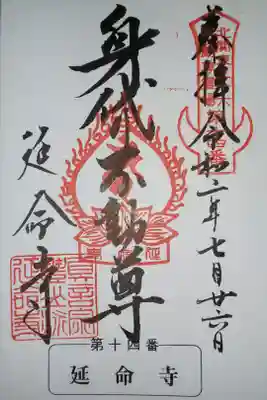 奉拝 令和二年七月廿六日
身代不動尊
延命寺
第十四番
延命寺